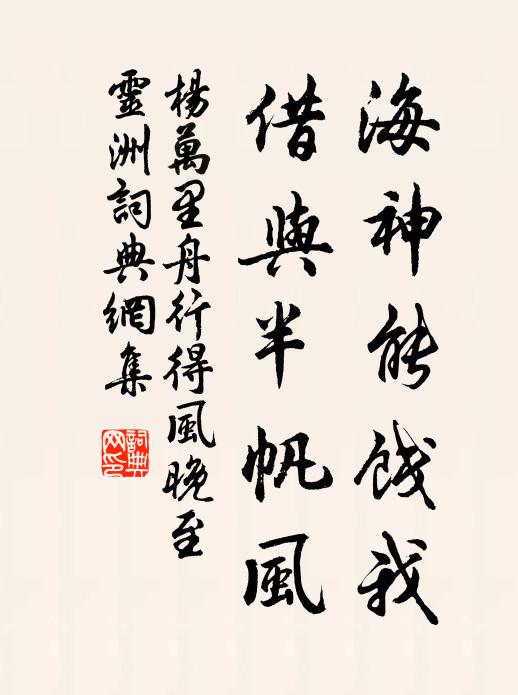 海神能餞我
借與半帆風
楊萬里舟行得風晚至
靈洲詞典網集
詞典网印